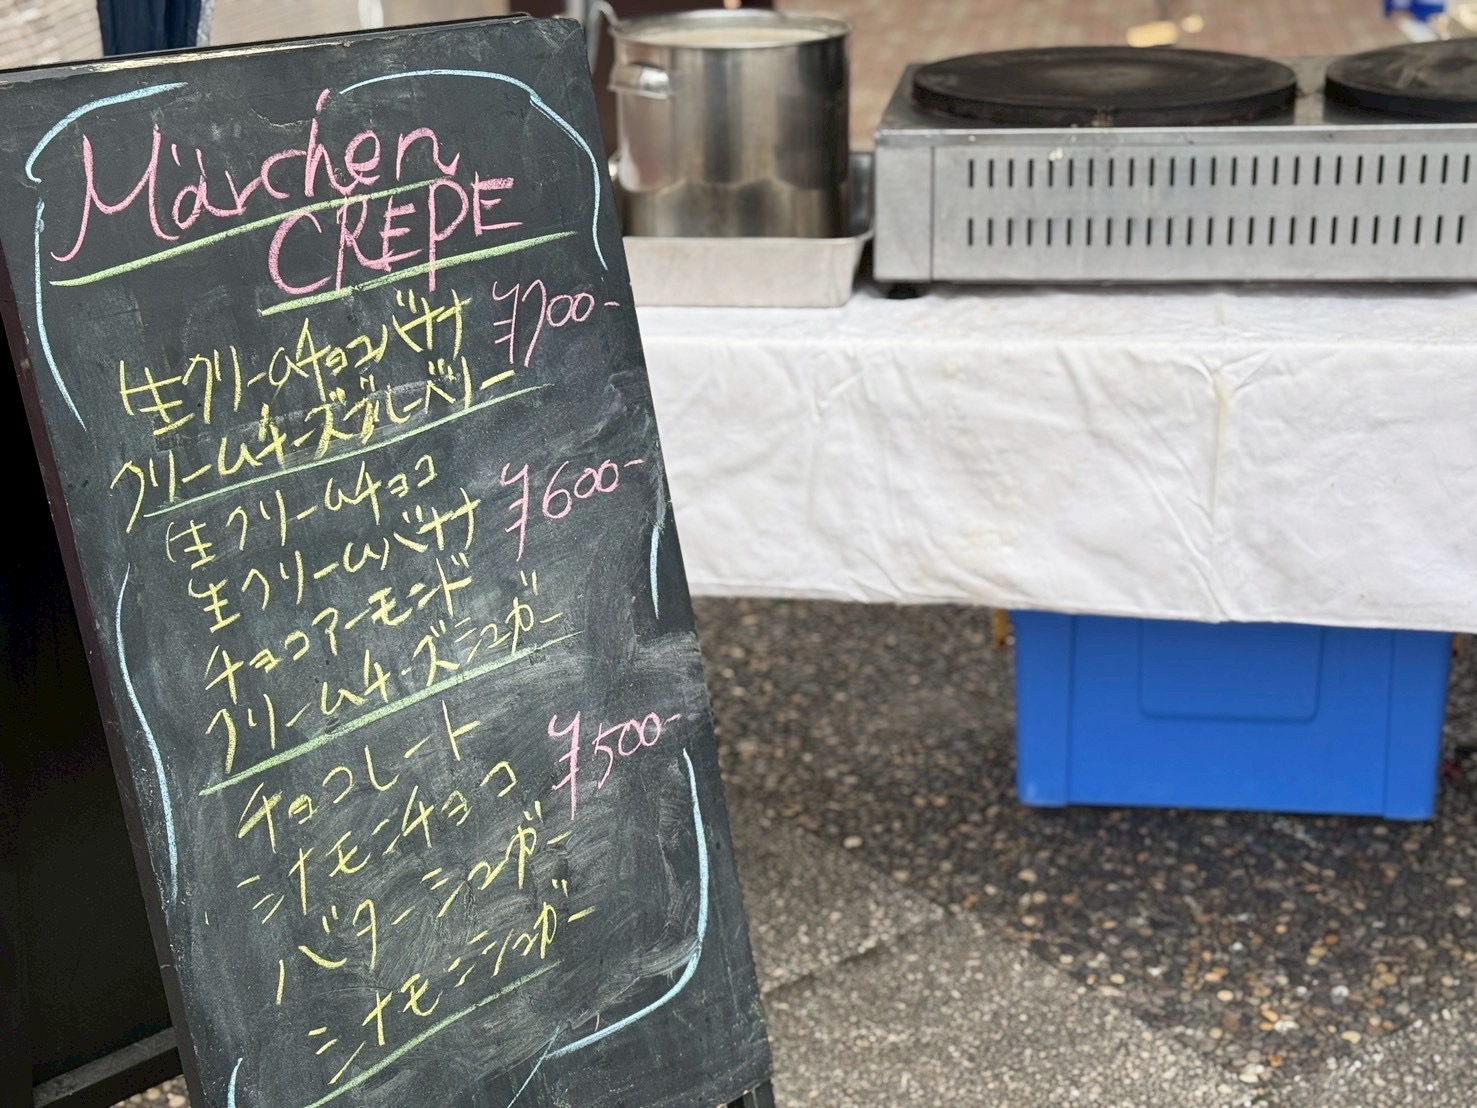 Märchen
CREPE
生クリームチョコバナナ ¥700-
クリームチーズブルーベリー
生クリームチョコ
生クリームバナナ ¥600-
チョコアーモンド
クリームチーズシュガー
チョコレート
シナモンチョコ ¥500-
バターシュガー
シナモンシュガー